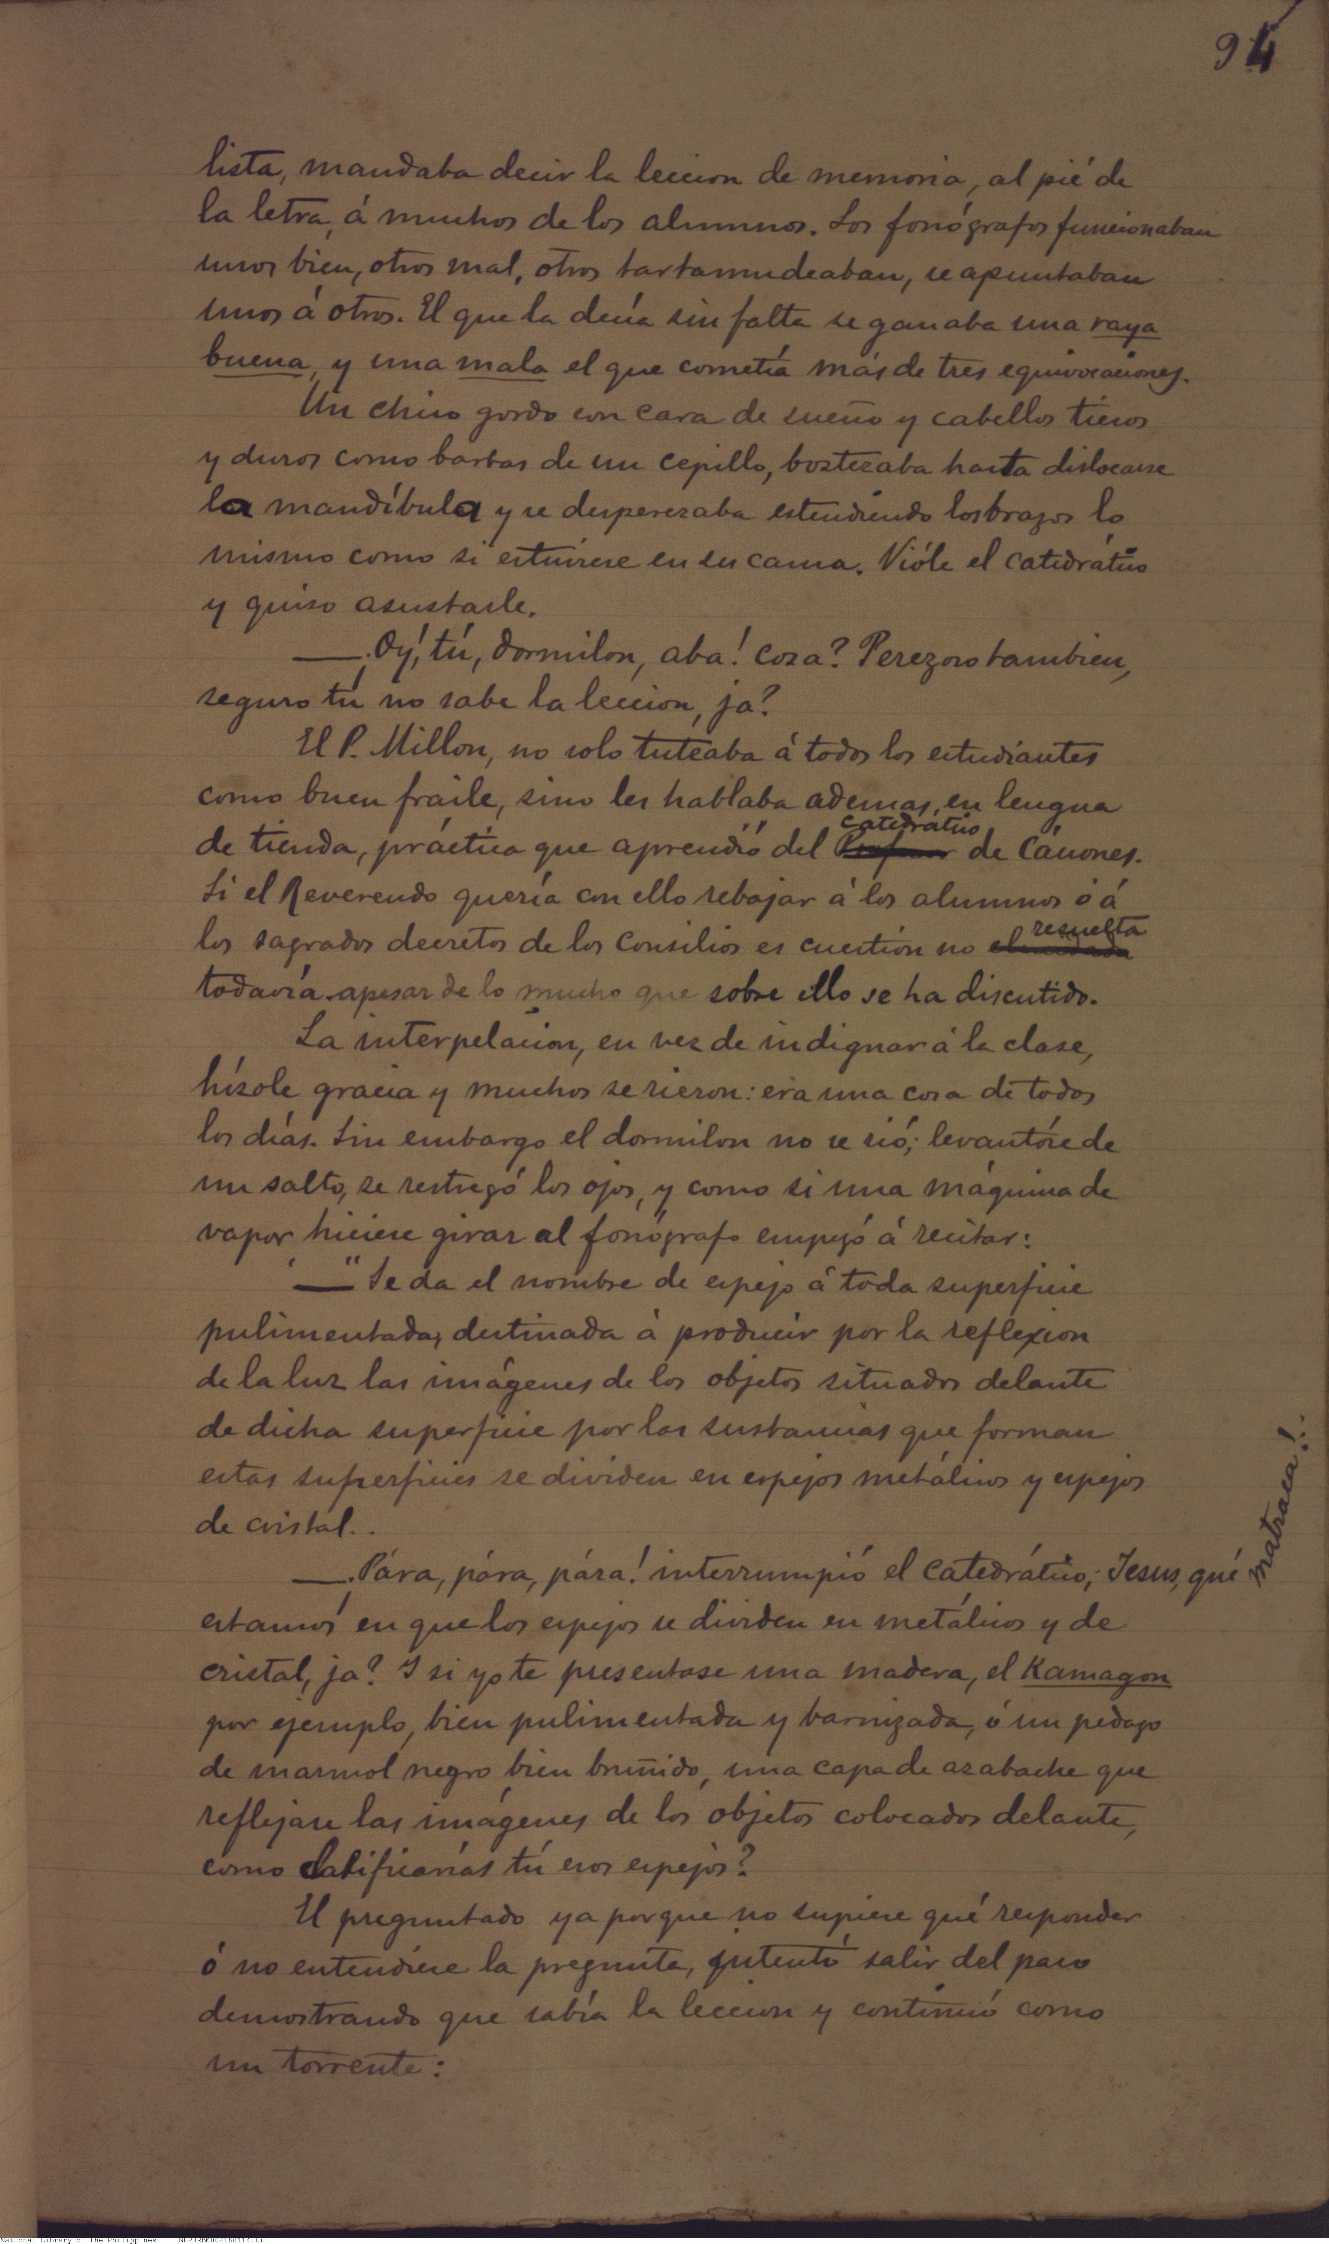 94
lista, mandaba decir la leccion de memoria, al pié de
la letra, á muchos de los alumnos. Los fonógrafos funcionaban
unos bien, otros mal, otros tartamudeaban, se apuntaban
unos á otros. El que la decía sin falta se ganaba una raya
buena, y una mala el que cometía más de tres equivocaciones.
Un chino gordo con cara de sueño y cabellos tiesos
y duros como barbas de un cepillo, bostezaba hasta dislocarse
la mandíbula y se desperezaba estendiendo los brazos lo
mismo como si estuviese en su cama. Vióle el catedrático
y quiso asustarle.
—Oy, tú, dormilon, aba! cosa? Perezoso tambien,
seguro tú no sabe la leccion, ja?
El P. Millon, no solo tuteaba á todos los estudiantes
como buen fraile, sino les hablaba ademas en lengua
catedrático
de tienda, práctica que aprendió del Profesor de Cánones.
Si el Reverendo quería con ello rebajar á los alumnos ó á
resuelta
los sagrados decretos de los Consilios es cuestión no
todavía apesar de lo mucho que sobre ello se ha discutido.
La interpelacion, en vez de indignar á la clase,
hízole gracia y muchos se rieron: era una cosa de todos
los días. Sin embargo el dormilon no se rió; levantóse de
un salto, se restregó los ojos, y como si una máquina de
vapor hiciese girar al fonógrafo empezó á recitar:
—"Se da el nombre de espejo á toda superficie
pulimentada, destinada á producir por la reflexion
de la luz las imágenes de los objetos situados delante
de dicha superficie por las sustancias que forman
estas superficies se dividen en espejos metálicos y espejos
de cristal..
—Pára, pára, pára! interrumpió el catedrático; Jesus, qué
matraca!..
estamos en que los espejos se dividen en metálicos y de
cristal, ja? Y si yo te presentase una madera, el Kamagon
por ejemplo, bien pulimentada y barnizada, ó un pedazo
de marmol negro bien bruñido, una capa de azabache que
reflejase las imágenes de los objetos colocados delante,
como clasificarías tú esos espejos?
El preguntado ya porque no supiese qué responder
ó no entendiese la pregunta, intentó salir del paso
demostrando que sabía la leccion y continuó como
un torrente: